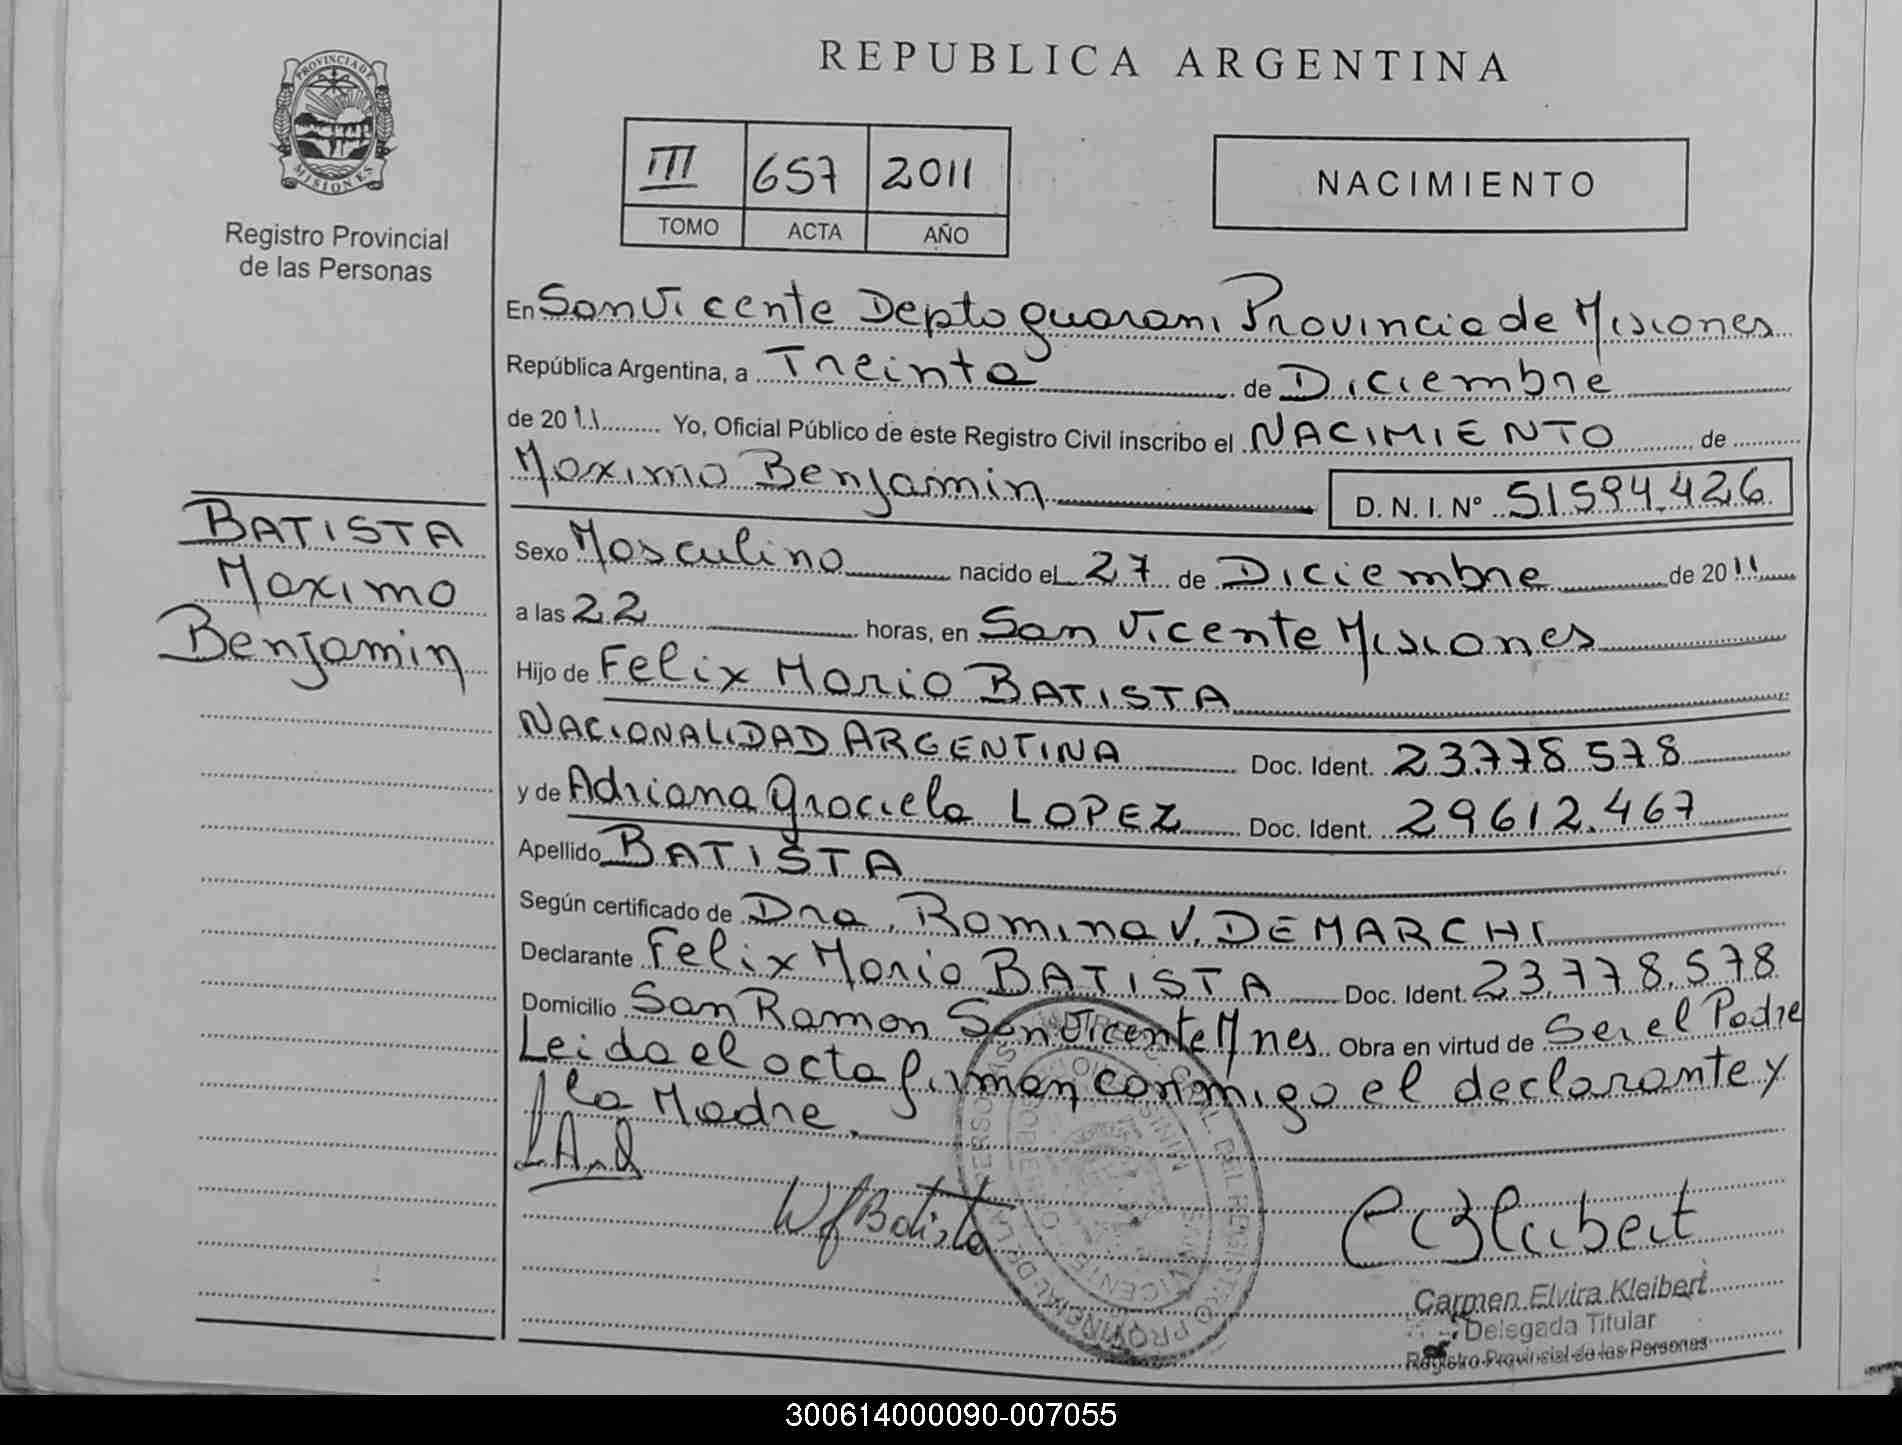 REPUBLICA ARGENTINA
PROVINCIA DE
MISIONES
Registro Provincial
de las Personas
III 657 2011
TOMO ACTA AÑO
NACIMIENTO
En San Vicente Depto guarani Provincia de Misiones
República Argentina, a Treinta de Diciembre
de 2011 Yo, Oficial Público de este Registro Civil inscribo el NACIMIENTO de
Maximo Benjamin D. N. I. Nº 51594.426
BATISTA
Maximo
Benjamin
Sexo Masculino nacido el 27 de Diciembre de 2011
a las 22 horas, en San Vicente Misiones
Hijo de Felix Mario BATISTA
NACIONALIDAD ARGENTINA Doc. Ident. 23.778.578
y de Adriana Graciela LOPEZ Doc. Ident. 29612.467
Apellido BATISTA
Según certificado de Dra. Romina V. DEMARCHI
Declarante Felix Mario BATISTA Doc. Ident. 23.778.578
Domicilio San Ramon San Vicente Mnes Obra en virtud de Ser el Padre
Leida el acta firman conmigo el declarante y
la Madre.
Batista
Carmen Elvira Kleibert
Delegada Titular
Registro Provincial de las Personas
300614000090-007055